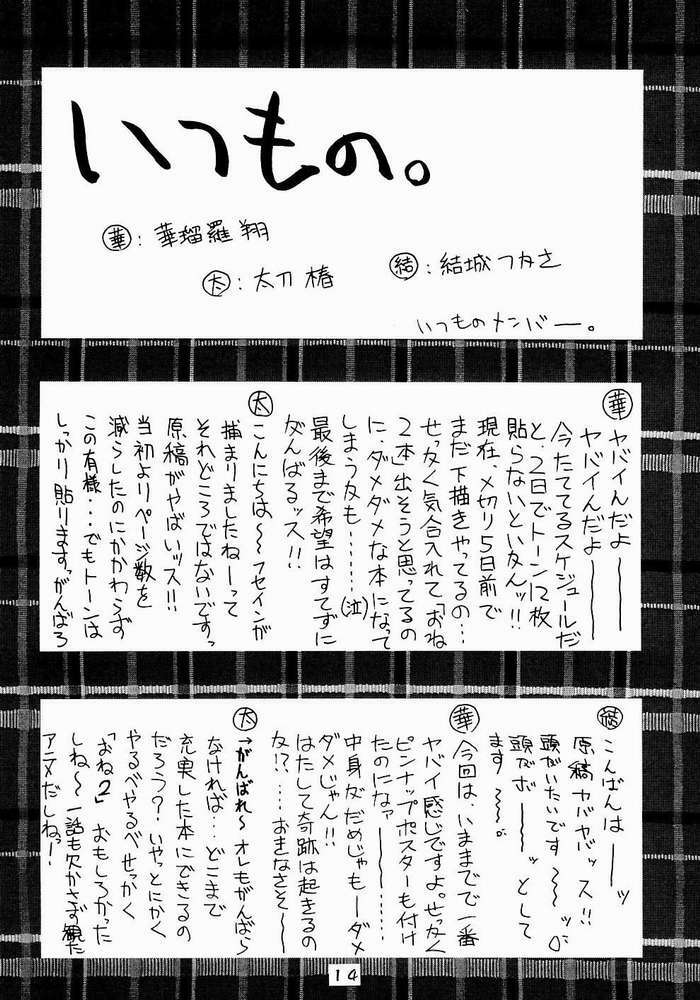 いつもの。
華：華瑠羅 翔
太：太刀 椿
結：結城つかさ
いつものメンバー。
華
ヤバイんだよ———
ヤバイんだよ———
今たててるスケジュールだ
と、2日でトーン12枚
貼らないといかんッ!!
現在、〆切り5日前で
まだ下描きやってるの…
せっかく気合入れて「おね
2本」出そうと思ってるの
に、ダメダメな本になって
しまうかも……(泣)
最後まで希望はすてずに
がんばるッス!!
太
こんにちは〜〜フセインが
捕まりましたねーって
それどころではないですっ
原稿がやばいッス!!
当初よりページ数を
減らしたのにかかわらず
この有様…でもトーンは
しっかり貼ります。がんばろ
結
こんばんは——ッ
原稿ヤバヤバッス!!
頭がいたいです〜〜ッ。
頭がボ——ッとして
ます〜〜。
華
今回は、いままでで一番
ヤバイ感じですよ。せっかく
ピンナップポスターも付け
たのになァ————……
中身がだめじゃもーダメ
ダメじゃん!!
はたして奇跡は起きるの
か!?…おきなさそ〜〜
太
→がんばれ〜 オレもがんばら
なければ…どこまで
充実した本にできるの
だろう？いやっとにかく
やるべやるべせっかく
「おね2」おもしろかった
しね〜一話も欠かさず観た
アニメだしねっー!
14